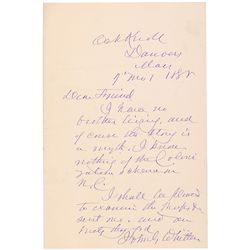 Oak Knoll
Danvers
Mass
9 Mo 1 188
Dear Friend
I have no
brother living, and of
course the story is
a myth. I know
nothing of the Coloni
zation scheme in
N.C.
I shall be pleased
to examine the
sent me, and am
truly thy frd
John G Whittier